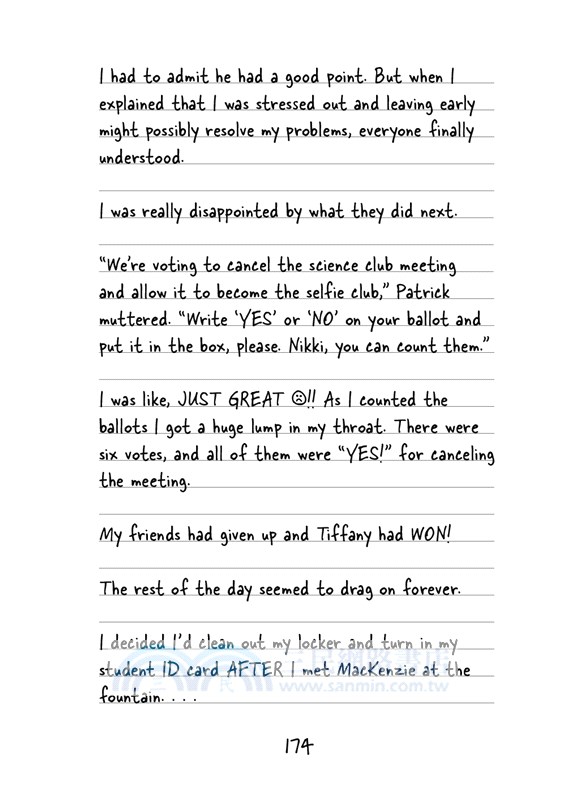 I had to admit he had a good point. But when I
explained that I was stressed out and leaving early
might possibly resolve my problems, everyone finally
understood.
I was really disappointed by what they did next.
“We’re voting to cancel the science club meeting
and allow it to become the selfie club,” Patrick
muttered. “Write ‘YES’ or ‘NO’ on your ballot and
put it in the box, please. Nikki, you can count them.”
I was like, JUST GREAT ☹!! As I counted the
ballots I got a huge lump in my throat. There were
six votes, and all of them were “YES!” for canceling
the meeting.
My friends had given up and Tiffany had WON!
The rest of the day seemed to drag on forever.
I decided I’d clean out my locker and turn in my
student ID card AFTER I met MacKenzie at the
fountain. . . .
三民網路書店
三民
www.sanmin.com.tw
174